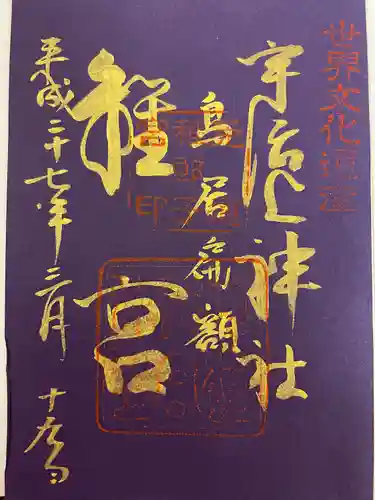 世界文化遺産
宇治上神社
鳥居扁額
離宮
平成二十七年三月十